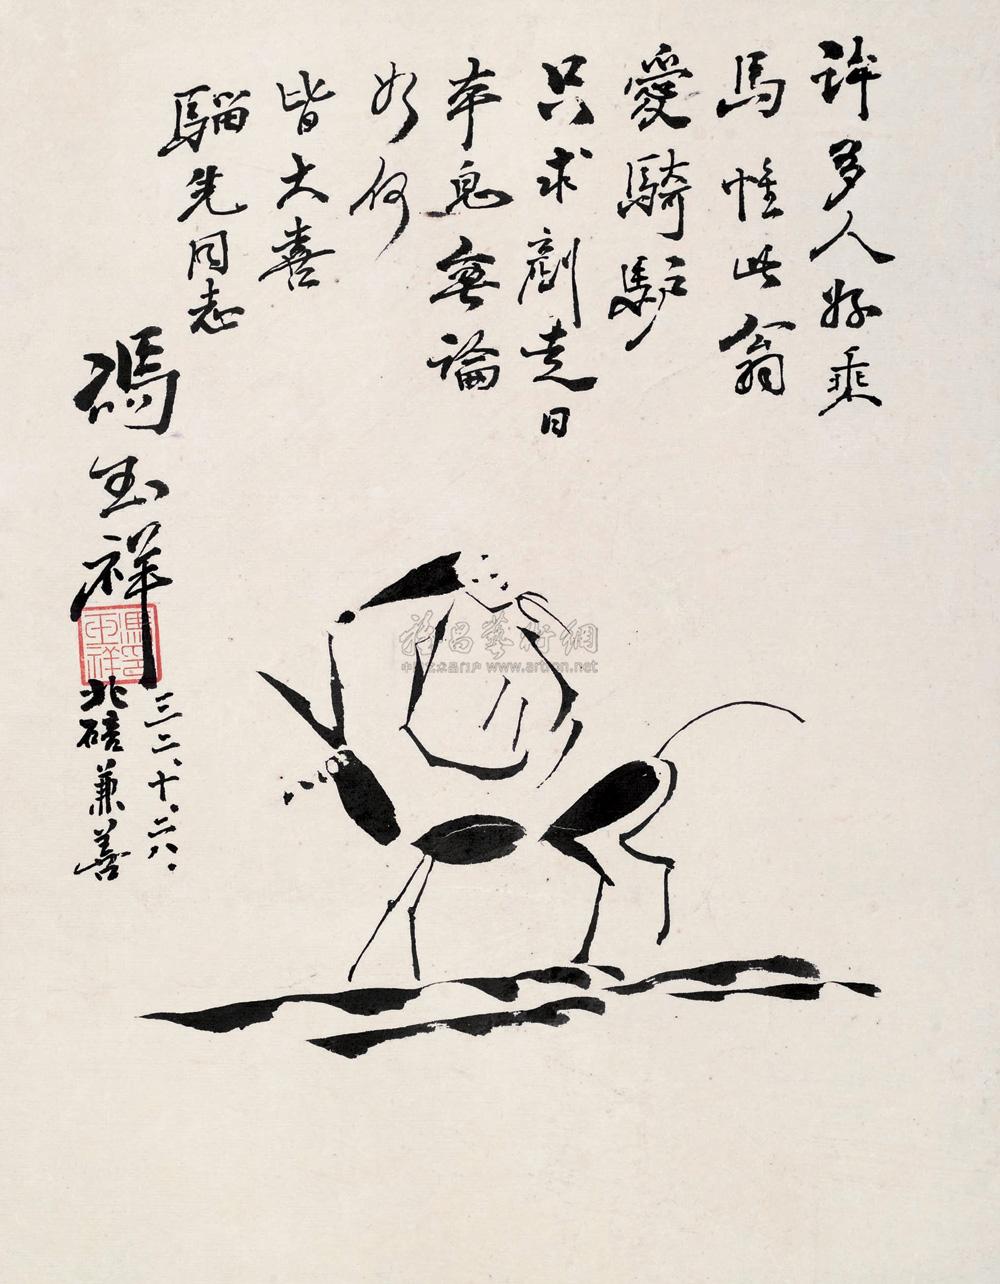 許多人好乘
馬惟此翁
愛騎馿
只求剷走日
本鬼無論
如何
皆大喜
騮先同志
馮玉祥
三二、十、二八、
北碚兼善
馮印玉祥
雅昌藝術網
中国艺术品门户 www.artron.net